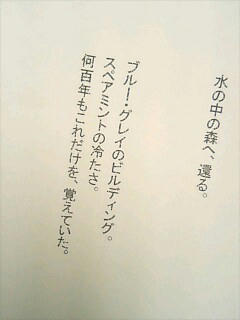 水の中の森へ、還る。
ブルー・グレイのビルディング。
スペアミントの冷たさ。
何百年もこれだけを、覚えていた。